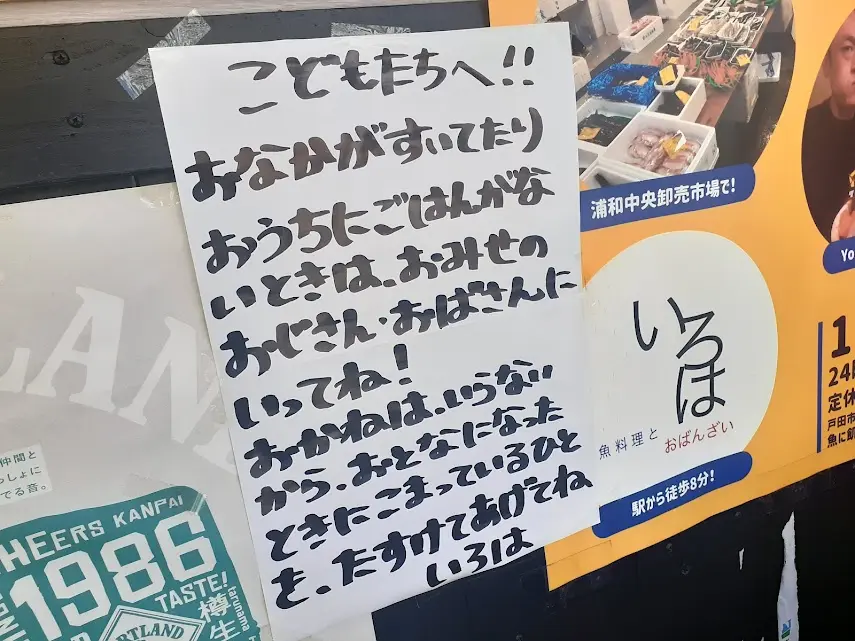 こどもたちへ!!
おなかがすいてたり
おうちにごはんがな
いときは、おみせの
おじさん・おばさんに
いってね!
おかねは、いらない
から、おとなになった
ときにこまっているひと
を、たすけてあげてね
いろは
浦和中央卸売市場で!
いろは
魚料理と
おばんざい
駅から徒歩8分!
Yo
1
24
定休
戸田市
魚に
LAN
仲間と
っしょに
でる音。
CHEERS KANPAI
1986
TASTE!
樽生
tarunama
RTLAND